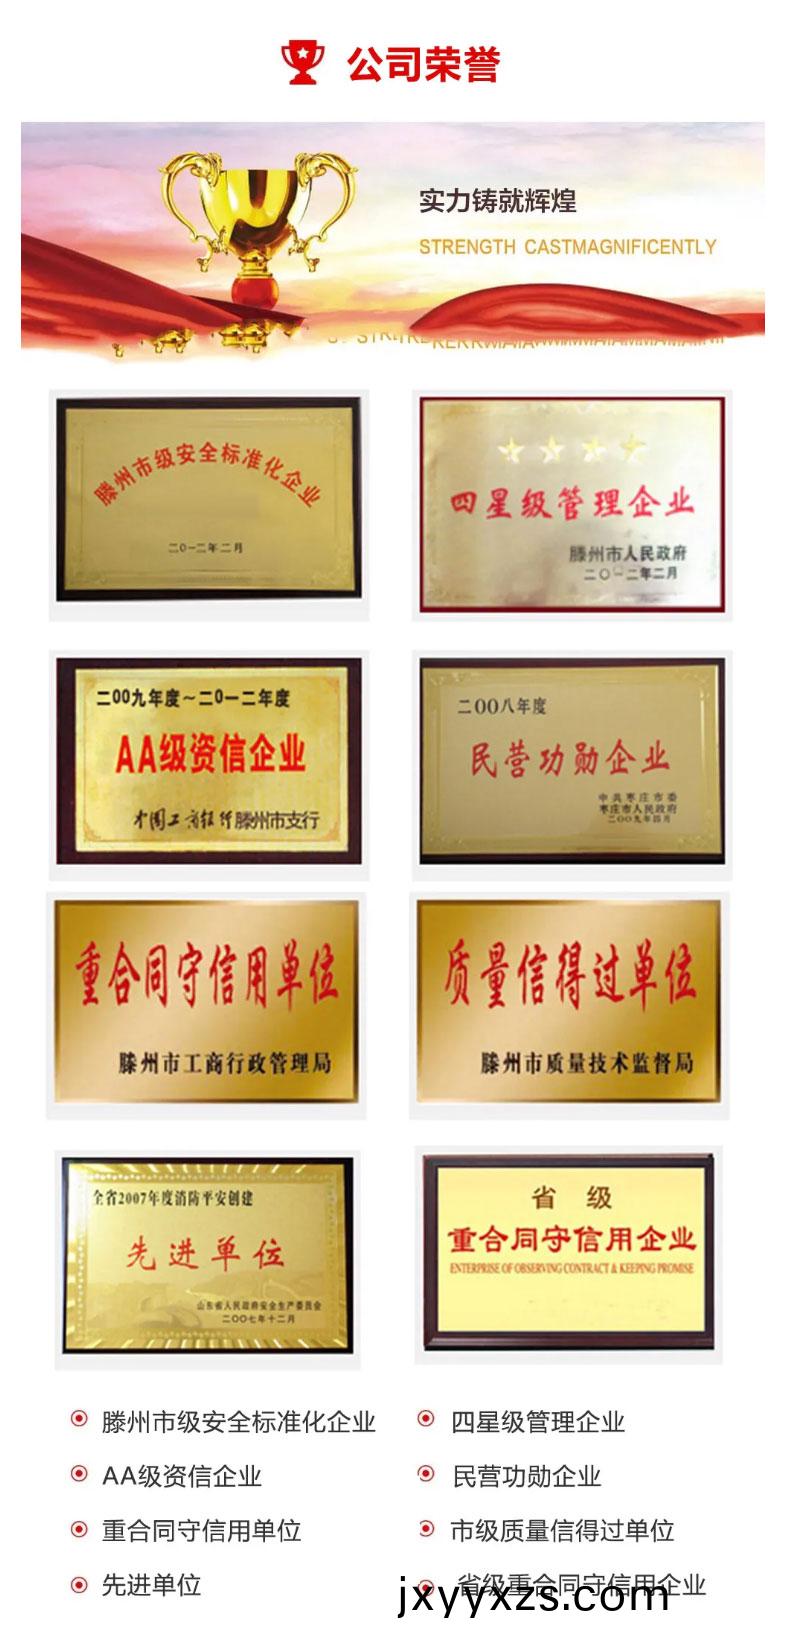 公司荣誉
实力铸就辉煌
STRENGTH CASTMAGNIFICENTLY
滕州市级安全标准化企业
二〇一二年二月
四星级管理企业
滕州市人民政府
二〇一二年二月
二00九年度～二0一二年度
AA级资信企业
中国工商银行滕州市支行
二00八年度
民营功勋企业
中共枣庄市委
枣庄市人民政府
二〇〇九年四月
重合同守信用单位
滕州市工商行政管理局
质量信得过单位
滕州市质量技术监督局
全省2007年度消防平安创建
先进单位
山东省人民政府安全生产委员会
二〇〇七年十二月
省 级
重合同守信用企业
ENTERPRISE OF OBSERVING CONTRACT & KEEPING PROMISE
滕州市级安全标准化企业
四星级管理企业
AA级资信企业
民营功勋企业
重合同守信用单位
市级质量信得过单位
先进单位
省级重合同守信用企业
jxyyxzs.com